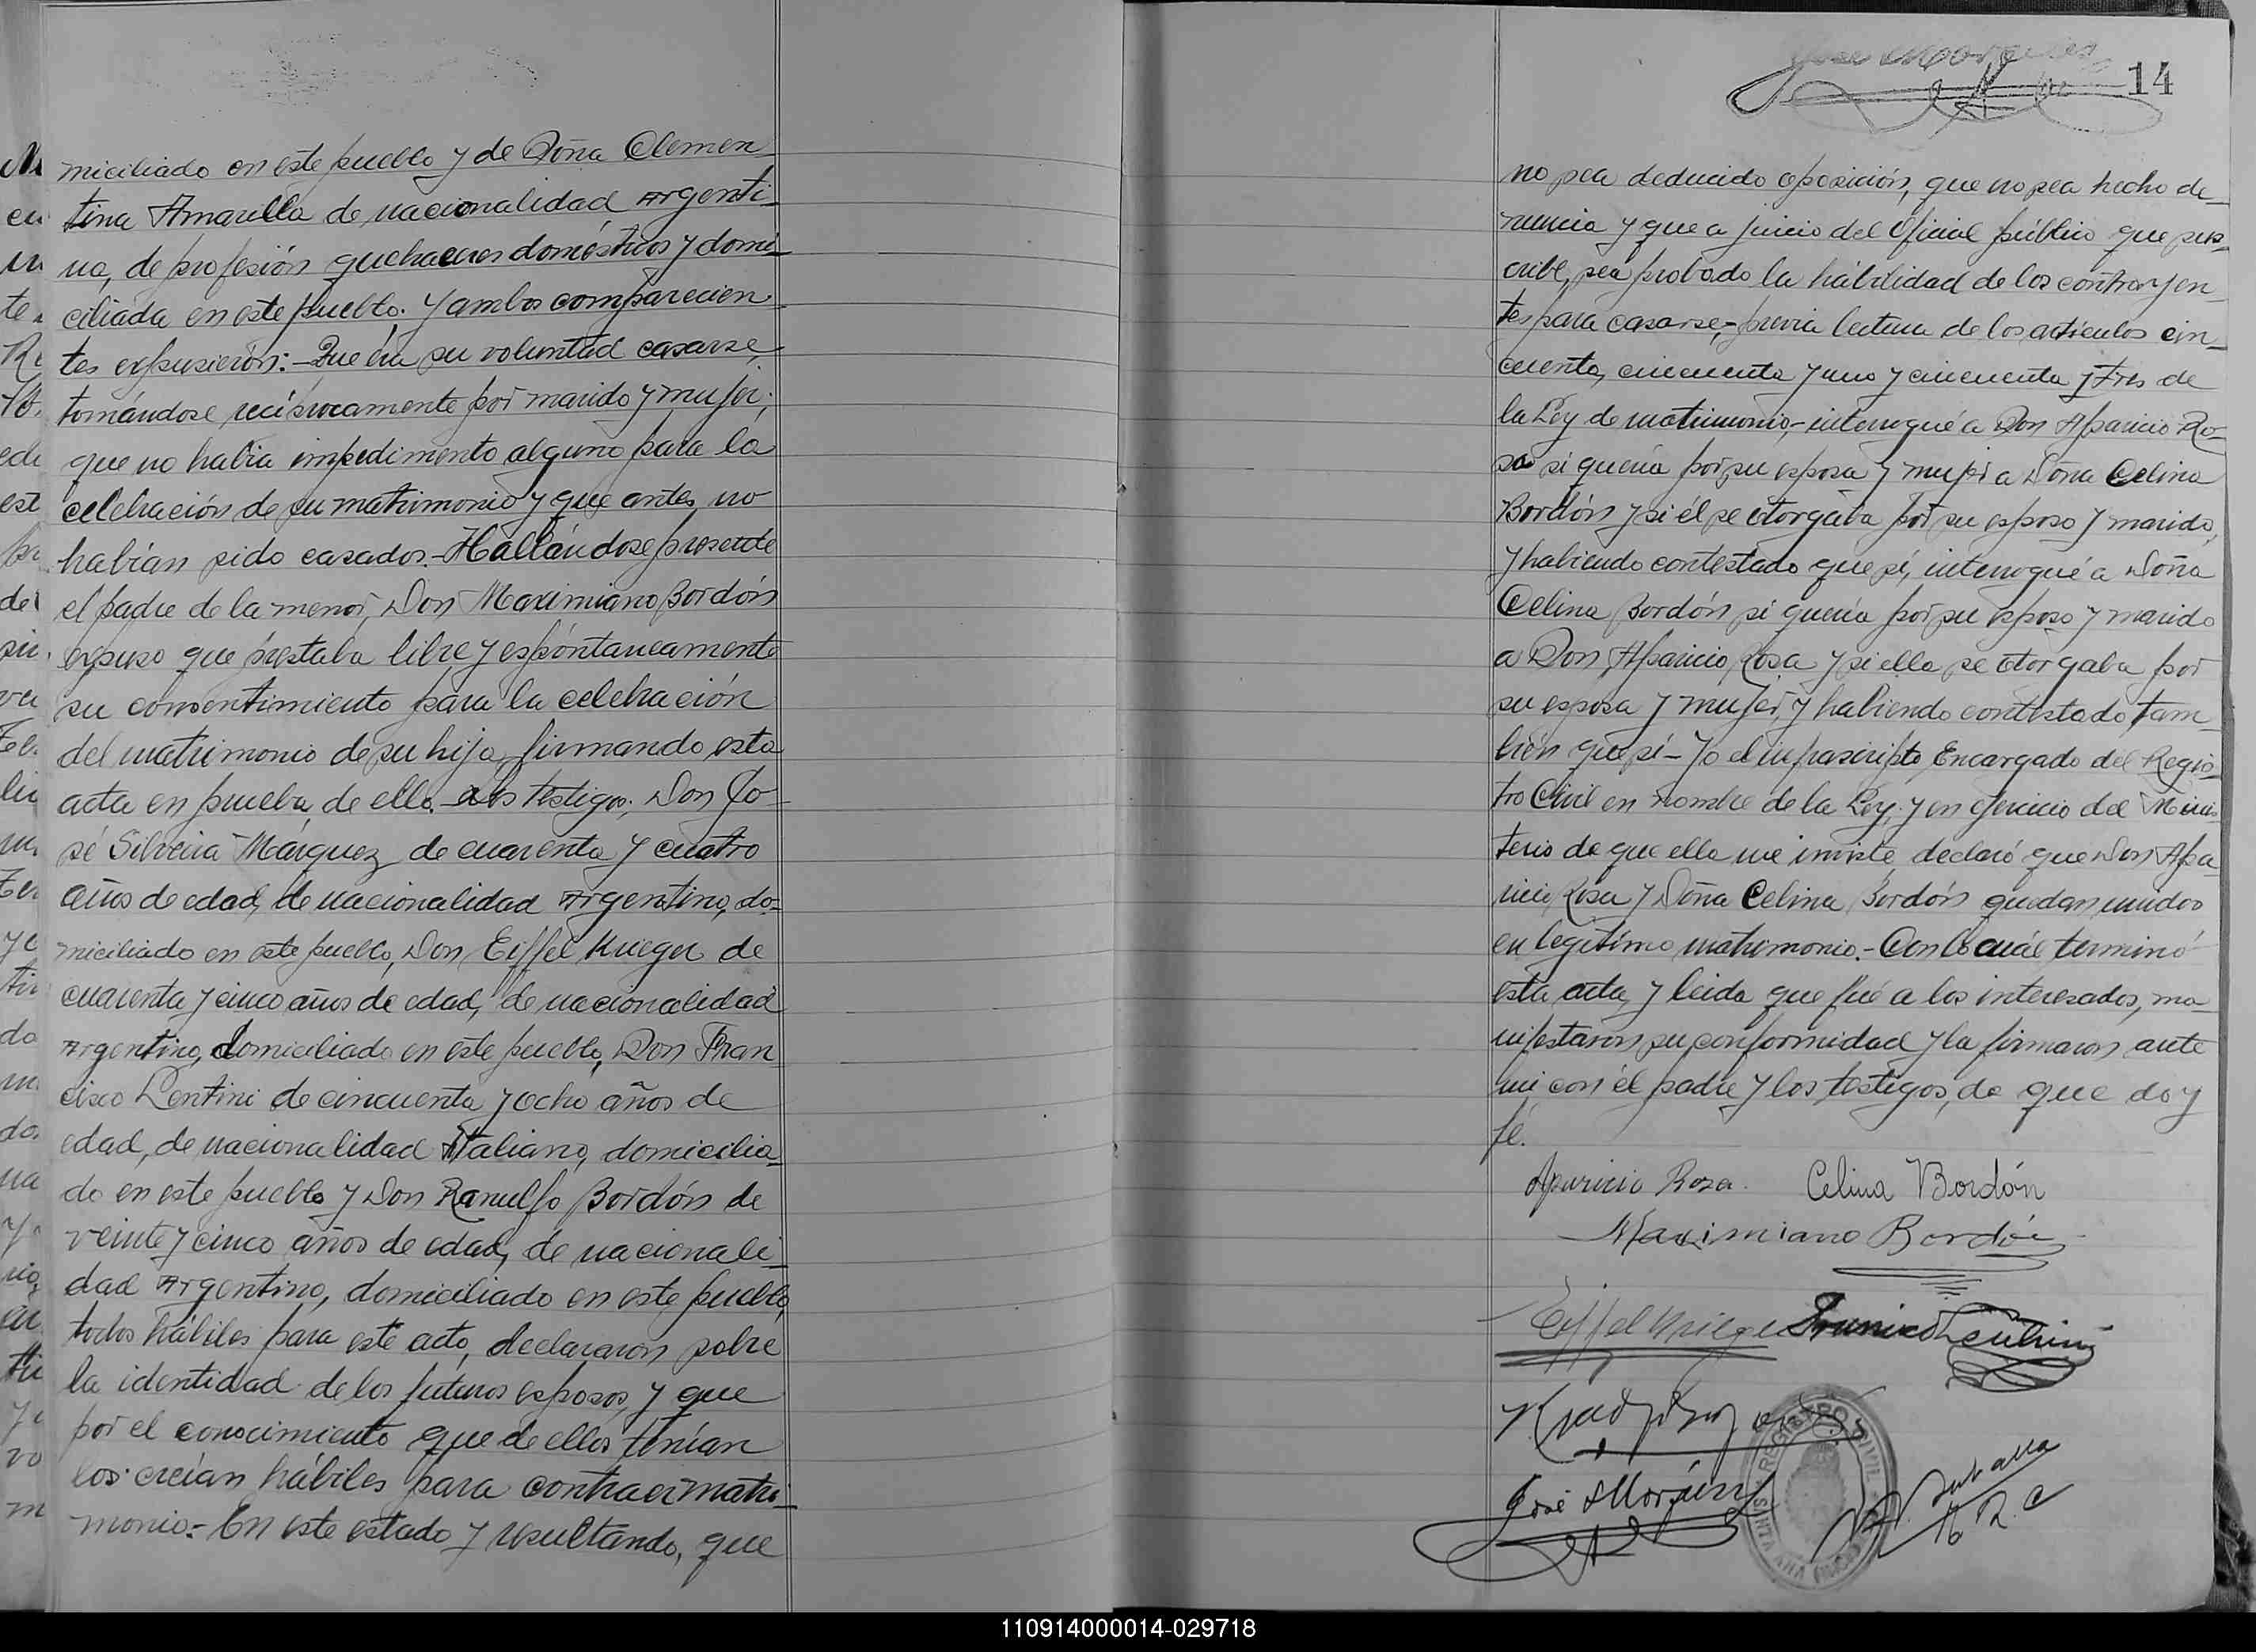 miciliado en este pueblo y de Doña Clemen
tina Amarilla de nacionalidad Argenti_
na, de profesión quehaceres domésticos y domi_
ciliada en este pueblo. y ambos comparecien_
tes expusieron:- Que era su voluntad casarse,
tomándose recíprocamente por marido y mujer;
que no habia impedimento alguno para la
celebración de su matrimonio y que antes no
habían sido casados.- Hallándose presente
el padre de la menor, Don Maximiano Bordón
expuso que prestaba libre y espóntaneamente
su consentimiento para la celebración
del matrimonio de su hija, firmando esta
acta en prueba de ello. Los testigos; Don Jo_
sé Silveira Márquez de cuarenta y cuatro
años de edad, de nacionalidad Argentino, do_
miciliado en este pueblo, Don Eiffel Krieger de
cuarenta y cinco años de edad, de nacionalidad
Argentino, domiciliado en este pueblo, Don Fran
cisco Lentini de cincuenta y ocho años de
edad, de nacionalidad Italiano, domicilia_
do en este pueblo y Don Ranulfo Bordón de
veinte y cinco años de edad, de nacionali_
dad Argentino, domiciliado en este pueblo,
todos hábiles para este acto, declararon sobre
la identidad de los futuros esposos, y que
por el conocimiento que de ellos tenían
los creían hábiles para contraer matri_
monio.- En este estado y resultando, que
14
no sea deducido oposición, que no sea hecho de_
nuncia y que a juicio del Oficial público que sus_
cribe, sea probado la habilidad de los contrayen_
tes para casarse,- previa lectura de los artículos cin_
cuenta, cincuenta y uno y cincuenta y tres de
la Ley de matrimonio,- interrogué a Don Aparicio Ro_
sa si quería por su esposa y mujer a Doña Celina
Bordón y si él se otorgaba por su esposo y marido,
y habiendo contestado que sí, interrogué a Doña
Celina Bordón si quería por su esposo y marido
a Don Aparicio Rosa y si ella se otorgaba por
su esposa y mujer, y habiendo contestado tam_
bién que sí- Yo el infrascripto Encargado del Regis_
tro Civil en nombre de la Ley, y en ejercicio del Minis_
terio de que ella me inviste, declaró que Don Apa_
ricio Rosa y Doña Celina Bordón quedan unidos
en legítimo matrimonio.- Con lo cuál terminó
esta acta y leida que fué a los interesados, ma_
nifestaron su conformidad y la firmaron ante
mi con el padre y los testigos, de que doy
fé.
Aparicio Rosa. Celina Bordón
Maximiano Bordón
Eiffel Krieger Francisco Lentini
REGISTRO CIVIL
SANTA ANA
José
110914000014-029718